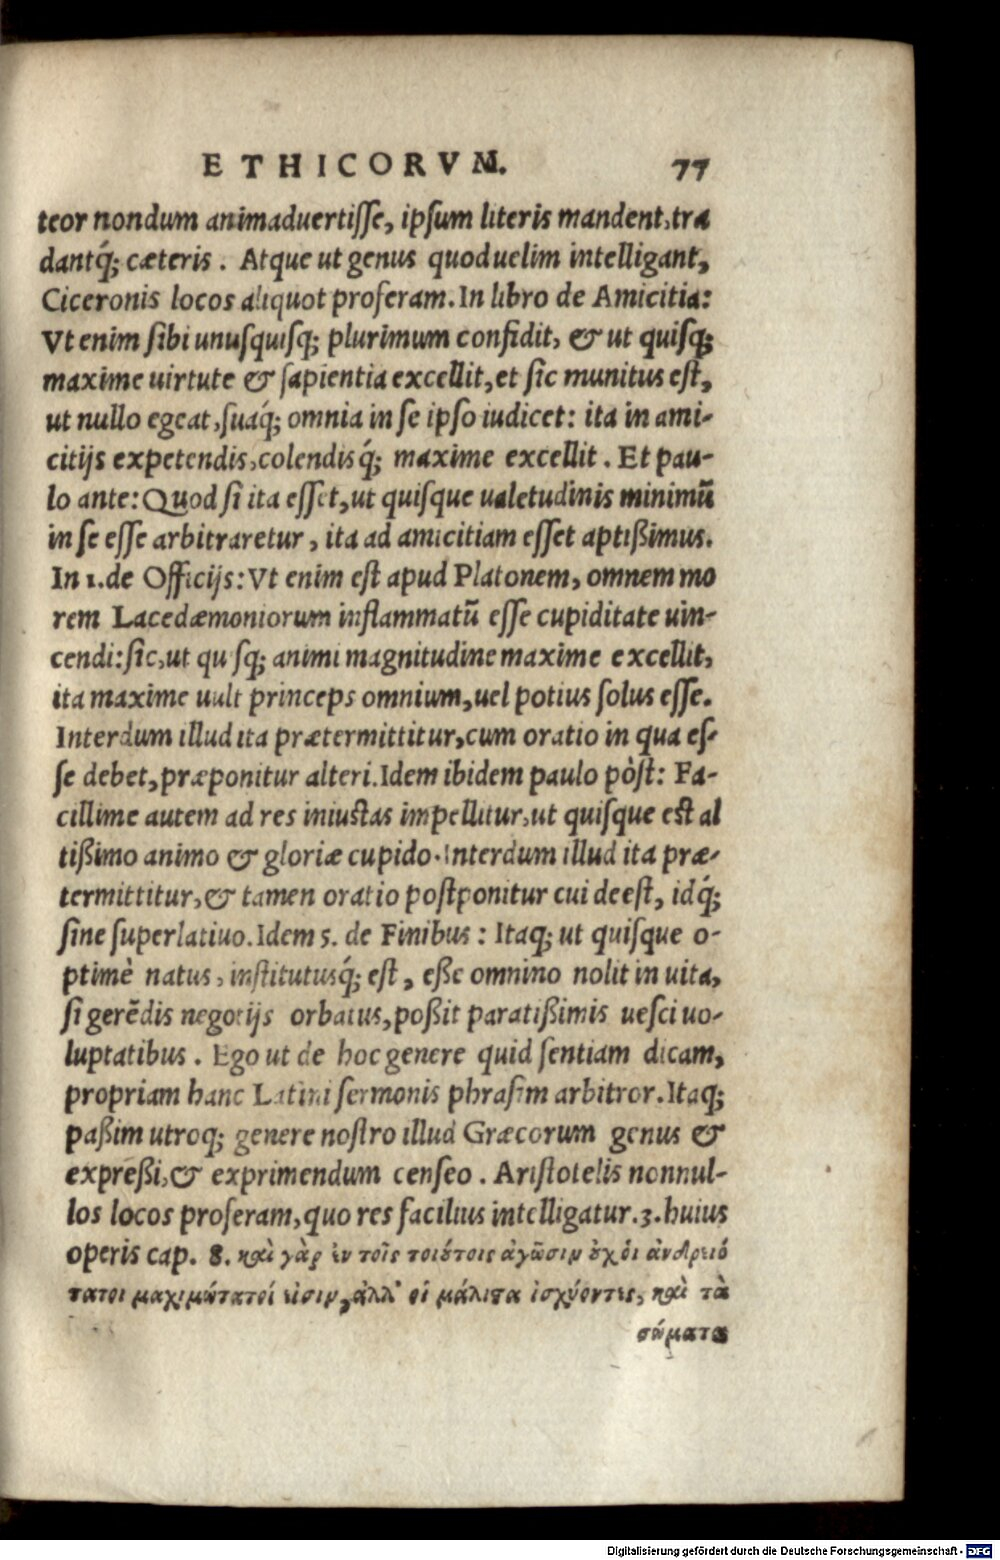 ETHICORVM. 77
teor nondum animaduertisse, ipsum literis mandent, tra
dantq́; cæteris. Atque ut genus quod uelim intelligant,
Ciceronis locos aliquot proferam. In libro de Amicitia:
Vt enim sibi unusquisq; plurimum confidit, & ut quisq;
maxime uirtute & sapientia excellit, et sic munitus est,
ut nullo egeat, suaq́; omnia in se ipso iudicet: ita in ami-
citijs expetendis, colendisq́; maxime excellit. Et pau-
lo ante: Quod si ita esset, ut quisque ualetudinis minimū
in se esse arbitraretur, ita ad amicitiam esset aptißimus.
In 1. de Officijs: Vt enim est apud Platonem, omnem mo
rem Lacedæmoniorum inflammatū esse cupiditate uin-
cendi: sic, ut qu sq; animi magnitudine maxime excellit,
ita maxime uult princeps omnium, uel potius solus esse.
Interdum illud ita prætermittitur, cum oratio in qua es-
se debet, præponitur alteri. Idem ibidem paulo pòst: Fa-
cillime autem ad res iniustas impellitur, ut quisque est al
tißimo animo & gloriæ cupido. Interdum illud ita præ-
termittitur, & tamen oratio postponitur cui deest, idq́;
sine superlatiuo. Idem 5. de Finibus: Itaq; ut quisque o-
ptimè natus, institutusq́; est, eße omnino nolit in uita,
si gerēdis negotijs orbatus, poßit paratißimis uesci uo-
luptatibus. Ego ut de hoc genere quid sentiam dicam,
propriam hanc Latini sermonis phrasim arbitror. Itaq;
paßim utroq; genere nostro illud Græcorum genus &
expreßi, & exprimendum censeo. Aristotelis nonnul-
los locos proferam, quo res facilius intelligatur. 3. huius
operis cap. 8. καὶ γὰρ ἐν τοῖς τοιούτοις ἀγῶσιν οὐχ οἱ ἀνδρειό
τατοι μαχιμώτατοί εἰσιν, ἀλλ' οἱ μάλιστα ἰσχύοντες, καὶ τὰ
σώματα
Digitalisierung gefördert durch die Deutsche Forschungsgemeinschaft - DFG